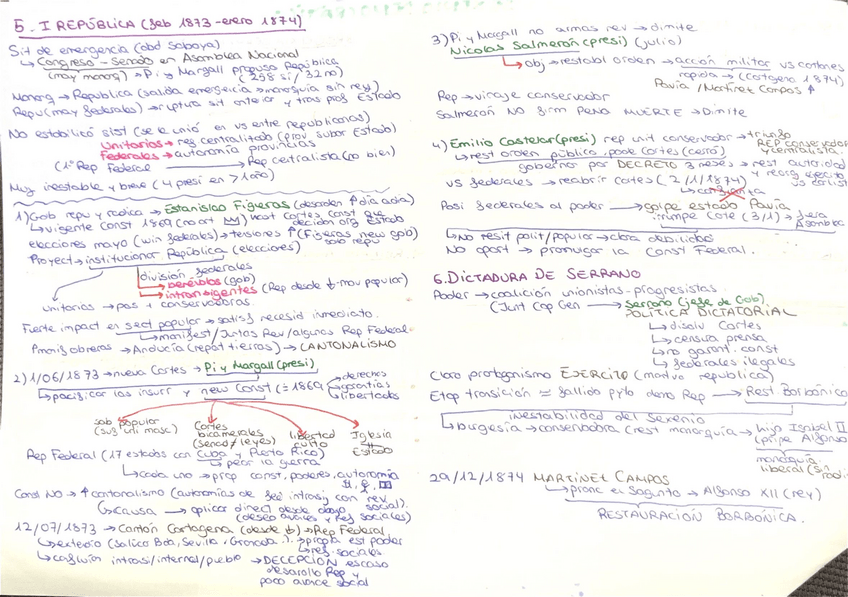 5. I REPÚBLICA (feb 1873 - enero 1874)
Sit de emergencia (abd Saboya)
↳ Congreso - Senado en Asamblea Nacional
(may monarq) → Pi y Margall propuso República
(258 sí / 32 no)
Monarq → República (salida emergencia → monarquía sin rey)
Repu (may federales) → ruptura sit anterior y tras prof Estado
No estabilizó sist (se le unió en vs entre republicanos)
Unitarios → reg centralizado (prov subor Estado)
Federales → autonomía provincias
(1º Rep Federal → Rep centralista (no bien)
Muy inestable y breve (4 presi en > 1 año)
1) Gob repu y radica → Estanislao Figueras (desorden ↑ día a día)
↳ vigente Const 1869 (no art) hast Cortes const que decidan org Estado
elecciones mayo (win federales) → tensiones ↑ (Figueras new gob) solo repu
Proyect → institucionar República (elecciones)
división federales
↳ benévolos (gob)
↳ intransigentes (Rep desde ↓ - mov popular)
unitarios → pos + conservadoras
Fuerte impact en sect popular → satisf necesid inmediato
↳ manifest / Juntas Rev / algunos Rep Federal
obreros → (repart tierras) → CANTONALISMO
2) 1/06/1873 → nueva Cortes → Pi y Margall (presi)
↳ pacificar las insurr y new Const (≈ 1869
derechos
garantías
libertades
sob popular
(suf uni masc)
Cortes
bicamerales
(senad / leyes)
libertad
culto
Iglesia
≠
Estado
Rep Federal (17 estados con Cuba y Puerto Rico)
↳ pear la guerra
↳ cada uno → prop const, poderes, autonomía
Const NO → ↑ cantonalismo (autonomías de fed intrasig con rev social)
↳ causa → aplicar direct desde abajo
(deseo avances y ref sociales)
12/07/1873 → Cantón Cartagena (desde ↓) → Rep Federal
↳ extedio (Salico Bda, Sevilla, Granada..) → propia est poder
↳ ref sociales
↳ intrasi / internl / pueblo → DECEPCIÓN escaso
desarollo Rep y
poco avance social
3) Pi y Margall no armas rev → dimite
Nicolás Salmerón (presi) (julio)
↳ obj → restabl orden → acción militar vs cantones
rápida → (Cartagena 1874)
Pavía / Martínez Campos ↑
Rep → viraje conservador
Salmerón NO firm PENA MUERTE → Dimite
4) Emilio Castelar (presi) rep unit conservador → triunfo REP conservador y centralista
↳ rest orden público, pode Cortes (cerró)
gobernó por DECRETO 3 meses → rest autoridad y reorg ejército vs carlist
vs federales → reabrir cortes (2/1/1874)
↳ confianza
Posi federales al poder → golpe estado Pavía
irrumpe Cote (3/1) → Asamblea
↳ No resit polit/popular → clara debilidad
No oport → promulgar la Const Federal.
6. DICTADURA DE SERRANO
Poder → coalición unionistas - progresistas
(Junt Cap Gen → Serrano (jefe de Gob)
POLÍTICA DICTATORIAL
↳ disolv Cortes
↳ censura prensa
↳ no garant. const
↳ federales ilegales
Claro protagonismo EJERCITO (motivo república)
Etap transición ≈ fallido pyto demo Rep → Rest. Borbónica
inestabilidad del Sexenio
↳ burgesía → conservadora (rest monarquía → hijo Isabel II
(prípe Alfonso
monarquía
liberal (sin
29/12/1874 MARTÍNEZ CAMPOS
↳ pronc en Sagunto → Alfonso XII (rey)
RESTAURACIÓN BORBÓNICA.